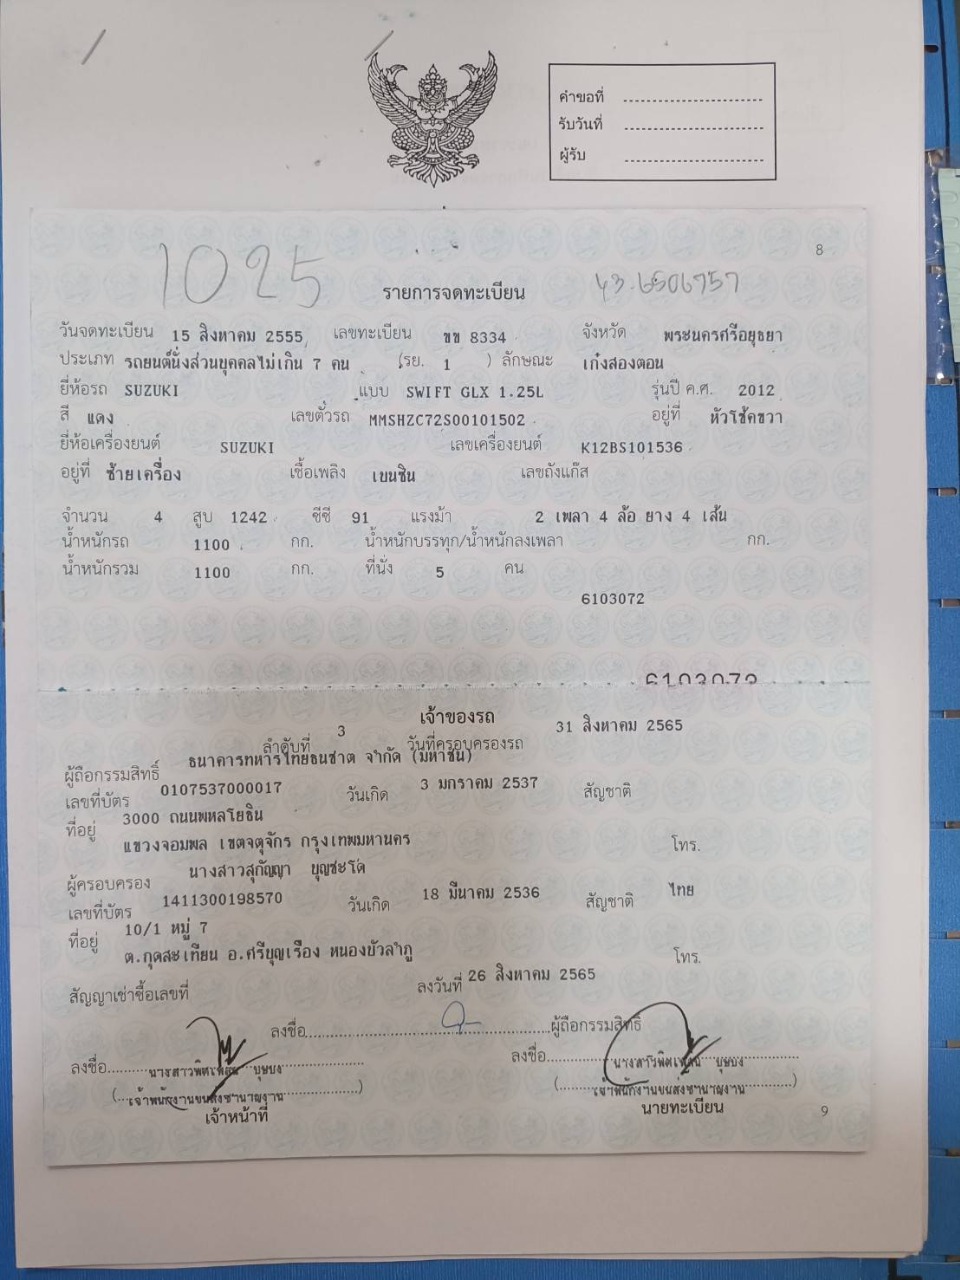 คำขอที่
รับวันที่
ผู้รับ
8
1025
43-6506757
รายการจดทะเบียน
วันจดทะเบียน 15 สิงหาคม 2555 เลขทะเบียน ขข 8334 จังหวัด พระนครศรีอยุธยา
ประเภท รถยนต์นั่งส่วนบุคคลไม่เกิน 7 คน (รย. 1 ) ลักษณะ เก๋งสองตอน
ยี่ห้อรถ SUZUKI แบบ SWIFT GLX 1.25L รุ่นปี ค.ศ. 2012
สี แดง เลขตัวรถ MMSHZC72S00101502 อยู่ที่ หัวโช้คขวา
ยี่ห้อเครื่องยนต์ SUZUKI เลขเครื่องยนต์ K12BS101536
อยู่ที่ ซ้ายเครื่อง เชื้อเพลิง เบนซิน เลขถังแก๊ส
จำนวน 4 สูบ 1242 ซีซี 91 แรงม้า 2 เพลา 4 ล้อ ยาง 4 เส้น
น้ำหนักรถ 1100 กก. น้ำหนักบรรทุก/น้ำหนักลงเพลา กก.
น้ำหนักรวม 1100 กก. ที่นั่ง 5 คน
6103072
6103072
เจ้าของรถ
ลำดับที่ 3 วันที่ครอบครองรถ 31 สิงหาคม 2565
ผู้ถือกรรมสิทธิ์ ธนาคารทหารไทยธนชาต จำกัด (มหาชน)
เลขที่บัตร 0107537000017 วันเกิด 3 มกราคม 2537 สัญชาติ
ที่อยู่ 3000 ถนนพหลโยธิน
แขวงจอมพล เขตจตุจักร กรุงเทพมหานคร โทร.
ผู้ครอบครอง นางสาวสุกัญญา บุญชะโด
เลขที่บัตร 1411300198570 วันเกิด 18 มีนาคม 2536 สัญชาติ ไทย
ที่อยู่ 10/1 หมู่ 7
ต.กุดสะเทียน อ.ศรีบุญเรือง หนองบัวลำภู โทร.
สัญญาเช่าซื้อเลขที่ ลงวันที่ 26 สิงหาคม 2565
ลงชื่อ ผู้ถือกรรมสิทธิ์
ลงชื่อ นางสาว บุษบง ลงชื่อ นางสาว บุษบง
(เจ้าพนักงานขนส่งชำนาญงาน) (เจ้าพนักงานขนส่งชำนาญงาน)
เจ้าหน้าที่ นายทะเบียน
9